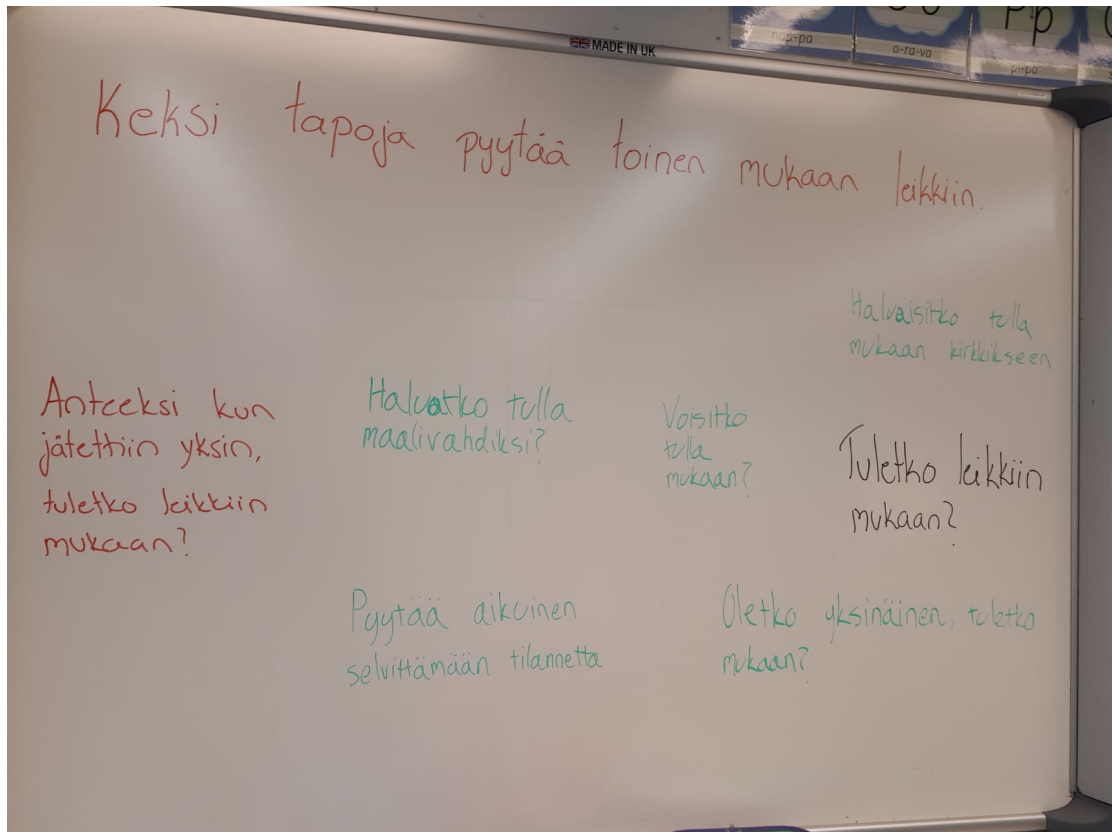 MADE IN UK
nap-pa
o-ra-va
Pp
pi-po
Keksi tapoja pyytää toinen mukaan leikkiin.
Haluaisitko tulla
mukaan kirkkikseen
Anteeksi kun
jätettiin yksin,
tuletko leikkiin
mukaan?
Haluatko tulla
maalivahdiksi?
Voisitko
tulla
mukaan?
Tuletko leikkiin
mukaan?
Pyytää aikuinen
selvittämään tilannetta
Oletko yksinäinen, tuletko
mukaan?